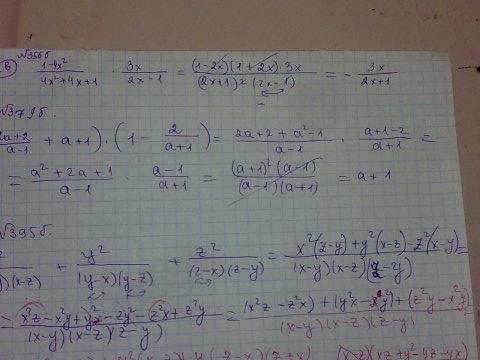 №356б
в) (1-4x²)/(4x²+4x+1) · 3x/(2x-1) = ((1-2x)(1+2x)·3x)/((2x+1)²(2x-1)) = - 3x/(2x+1)
№379б.
(2a+2)/(a-1) + a+1) · (1 - 2/(a+1)) = (2a+2+a²-1)/(a-1) · (a+1-2)/(a+1) =
= (a²+2a+1)/(a-1) · (a-1)/(a+1) = ((a+1)²(a-1))/((a-1)(a+1)) = a+1
№395б.
)(x-z) + y²/((y-x)(y-z)) + z²/((z-x)(z-y)) = (x²(z-y)+y²(x-z)-z²(x-y))/((x-y)(x-z)(z-y)) =
= (x²z-x²y+y²x-zy²-z²x+z²y)/((x-y)(x-z)(z-y)) = (x²z-z²x)+(y²x-x²y)+(z²y-x²y)/((x-y)(x-z)(z-y))